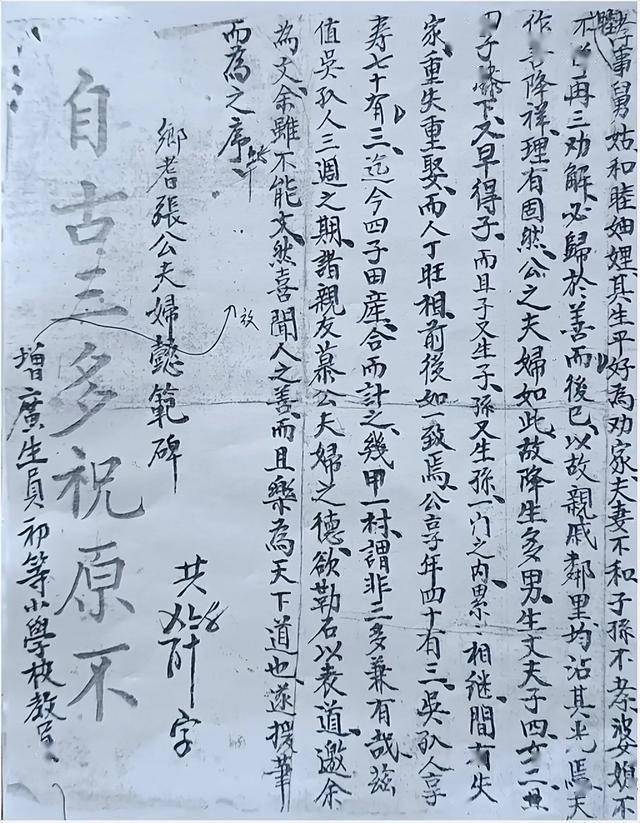 舅姑和睦妯娌其生平好為劝家夫妻不和子孫不孝婆媳不
再三劝解必歸於善而後已以故親戚鄰里均沾其光焉夫
作善降祥理有固然公之夫婦如此故降生多男生丈夫子四女二
子下又早得子而且子又生子孫又生孫一门之内累〻相継間有失
家重失重娶而人丁旺相前後如一致焉公享年四十有三吳孔人享
寿七十有三迄今四子田産合而計之幾甲一村謂非三多兼有哉兹
值吳孔人三週之期諸親友慕公夫婦之德欲勒石以表道邀余
為文余雖不能文然喜聞人之善而且樂為天下道也遂援筆
而為之序
鄉耆張公夫婦懿範碑
放
共
字
自古三多祝原不
增廣生員初等小學校教員